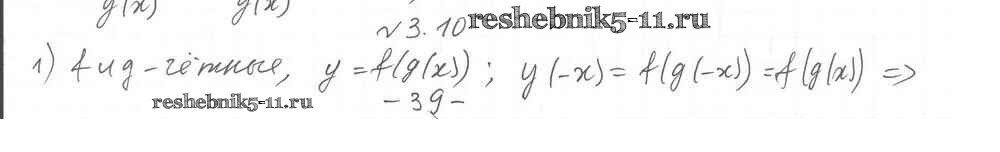 g(x) g(x)
№3.10 reshebnik5-11.ru
1) f и g - чётные, y = f(g(x)); y(-x) = f(g(-x)) = f(g(x)) =>
reshebnik5-11.ru
- 39 -